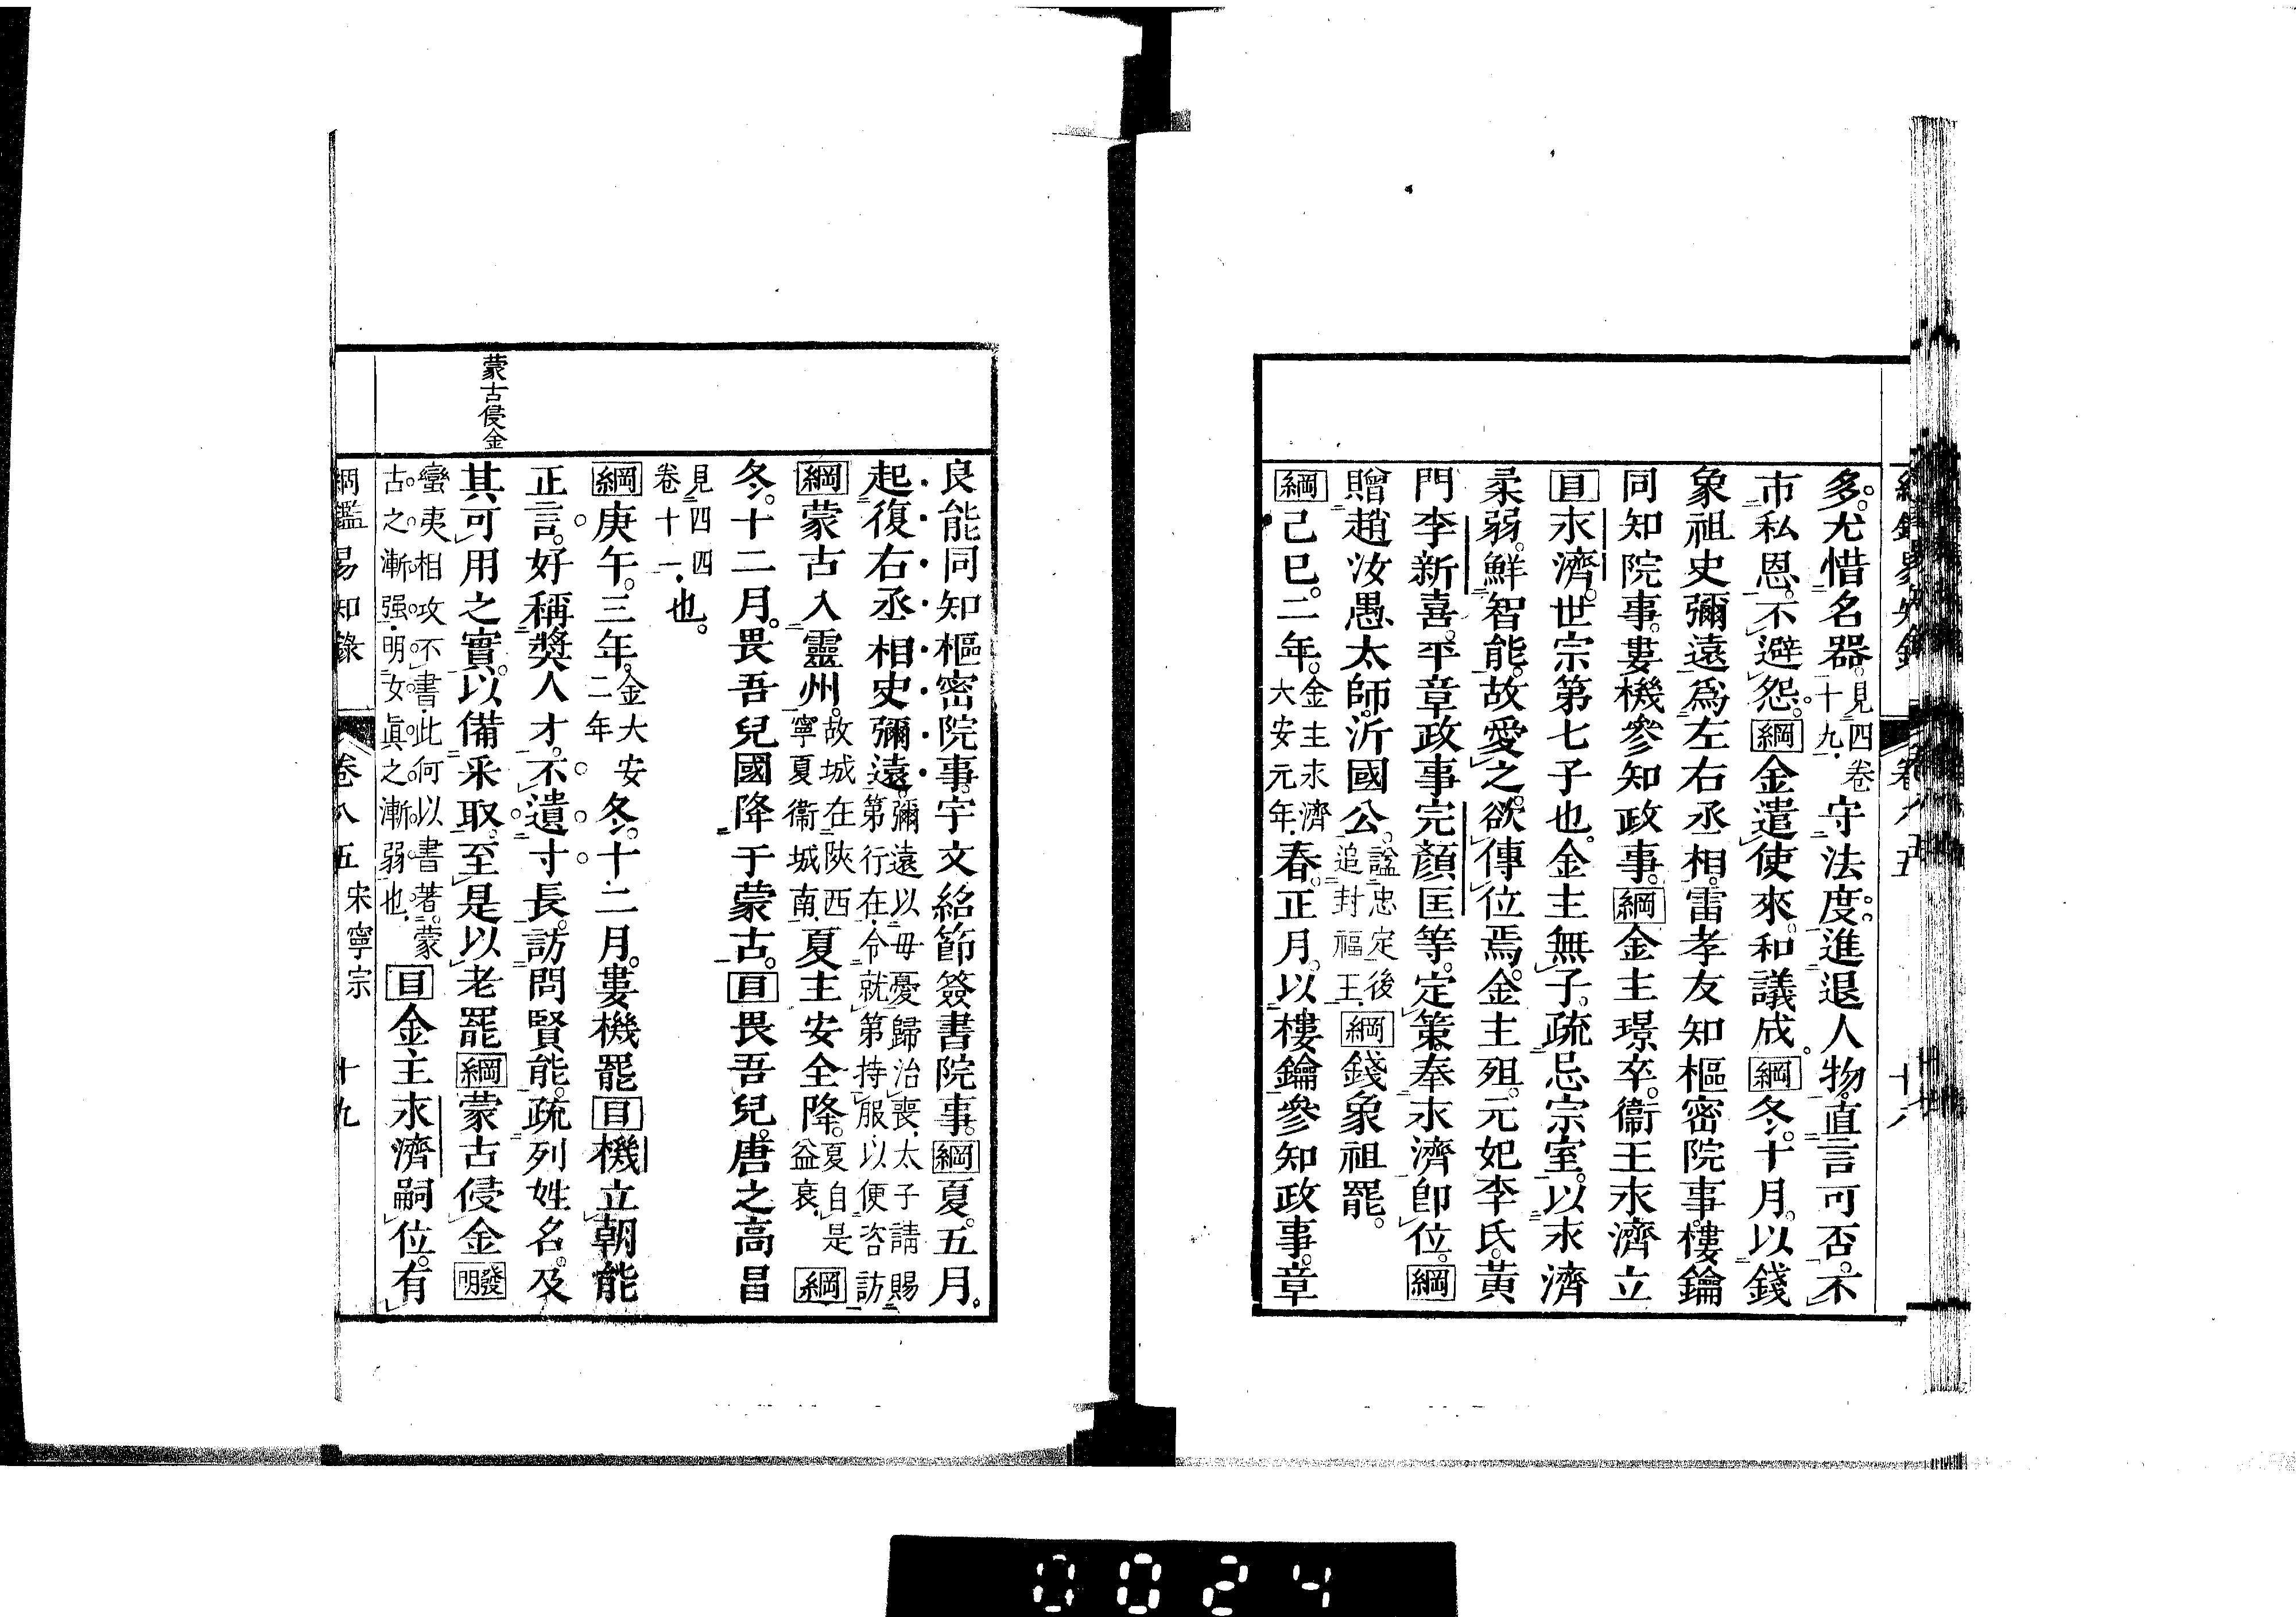 多。尤惜名器。見四卷十九、守法度。進退人物。直言可否。不
市私恩。不避怨。綱金遣使來。和議成。綱冬。十月。以錢
象祖史彌遠爲左右丞相。雷孝友知樞密院事。樓鑰
同知院事。婁機參知政事。綱金主璟卒。衞王永濟立
目永濟。世宗第七子也。金主無子。疏忌宗室。以永濟
柔弱。鮮智能。故愛之。欲傳位焉。金主殂。元妃李氏。黃
門李新喜。平章政事完顏匡等。定策。奉永濟卽位。綱
贈趙汝愚太師。沂國公。諡忠定後追封福王、綱錢象祖罷。
綱己巳。二年。金主永濟大安元年、春。正月。以樓鑰參知政事。章
良能同知樞密院事。宇文紹節簽書院事。綱夏。五月。
起復右丞相史彌遠。彌遠以毋憂歸治喪、太子請賜第行在、令就第持服、以便咨訪
綱蒙古入靈州。故城在陝西寧夏衞城南、夏主安全降。夏自是益衰、綱
冬。十二月。畏吾兒國降于蒙古。目畏吾兒。唐之高昌
見四四卷十一、也。
綱庚午。三年。金大安二年冬。十二月。婁機罷目機立朝能
正言。好稱奬人才。不遺寸長。訪問賢能。疏列姓名。及
其可用之實。以備采取。至是以老罷綱蒙古侵金發明
蠻夷相攻不書、此何以書著。蒙古之漸强、明女眞之漸弱也、目金主永濟嗣位。有
蒙古侵金
綱鑑易知錄 卷八五 宋寧宗 十九